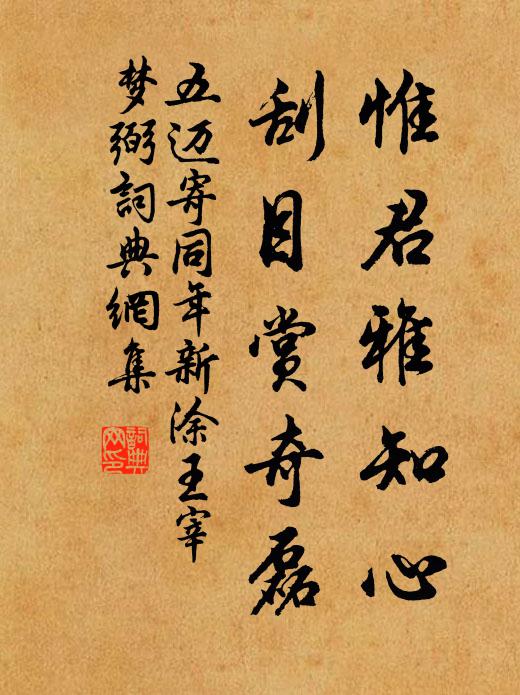 惟君雅知心
刮目赏奇磊
五迈寄同年新涂王宰
梦弼詞典網集
詞典
网印